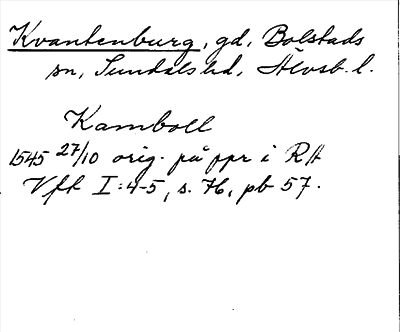 Kvantenburg, gd, Bolstads
sn, Sundals hd, Älvsb. l.
Kamboll
1545 27/10 orig. på ppr i RA
Vft I:4-5, s. 76, pb 57.